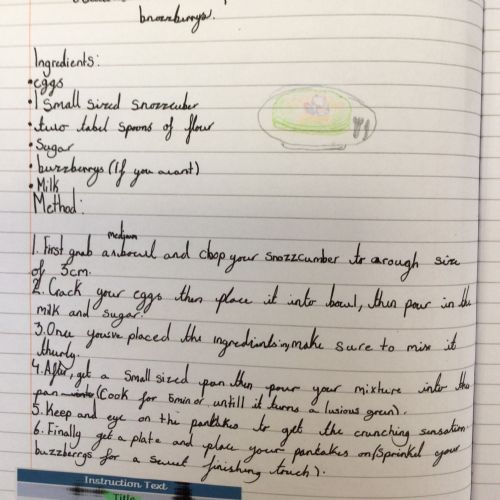 bnozzberrys.
Ingredients:
• eggs
• 1 small sized snozzcuber
• two label spoons of flour
• Sugar
• buzzberrys (If you want)
• Milk
Method:
medium
1. First grab a bowl and chop your snozzcumber to a rough size
of 5cm.
2. Crack your eggs then place it into bowl, then pour in the
milk and sugar.
3. Once youve placed the ingredients in, make sure to mix it
thurly.
4. After, get a small sized pan then pour your mixture into the
pan (Cook for 5min or untill it turns a lusious green).
5. Keep and eye on the pankakes to get the crunching sensation.
6. Finally get a plate and place your pancakes on (Sprinkel your
buzzberrys for a sweet finishing touch).
Instruction Text
Title